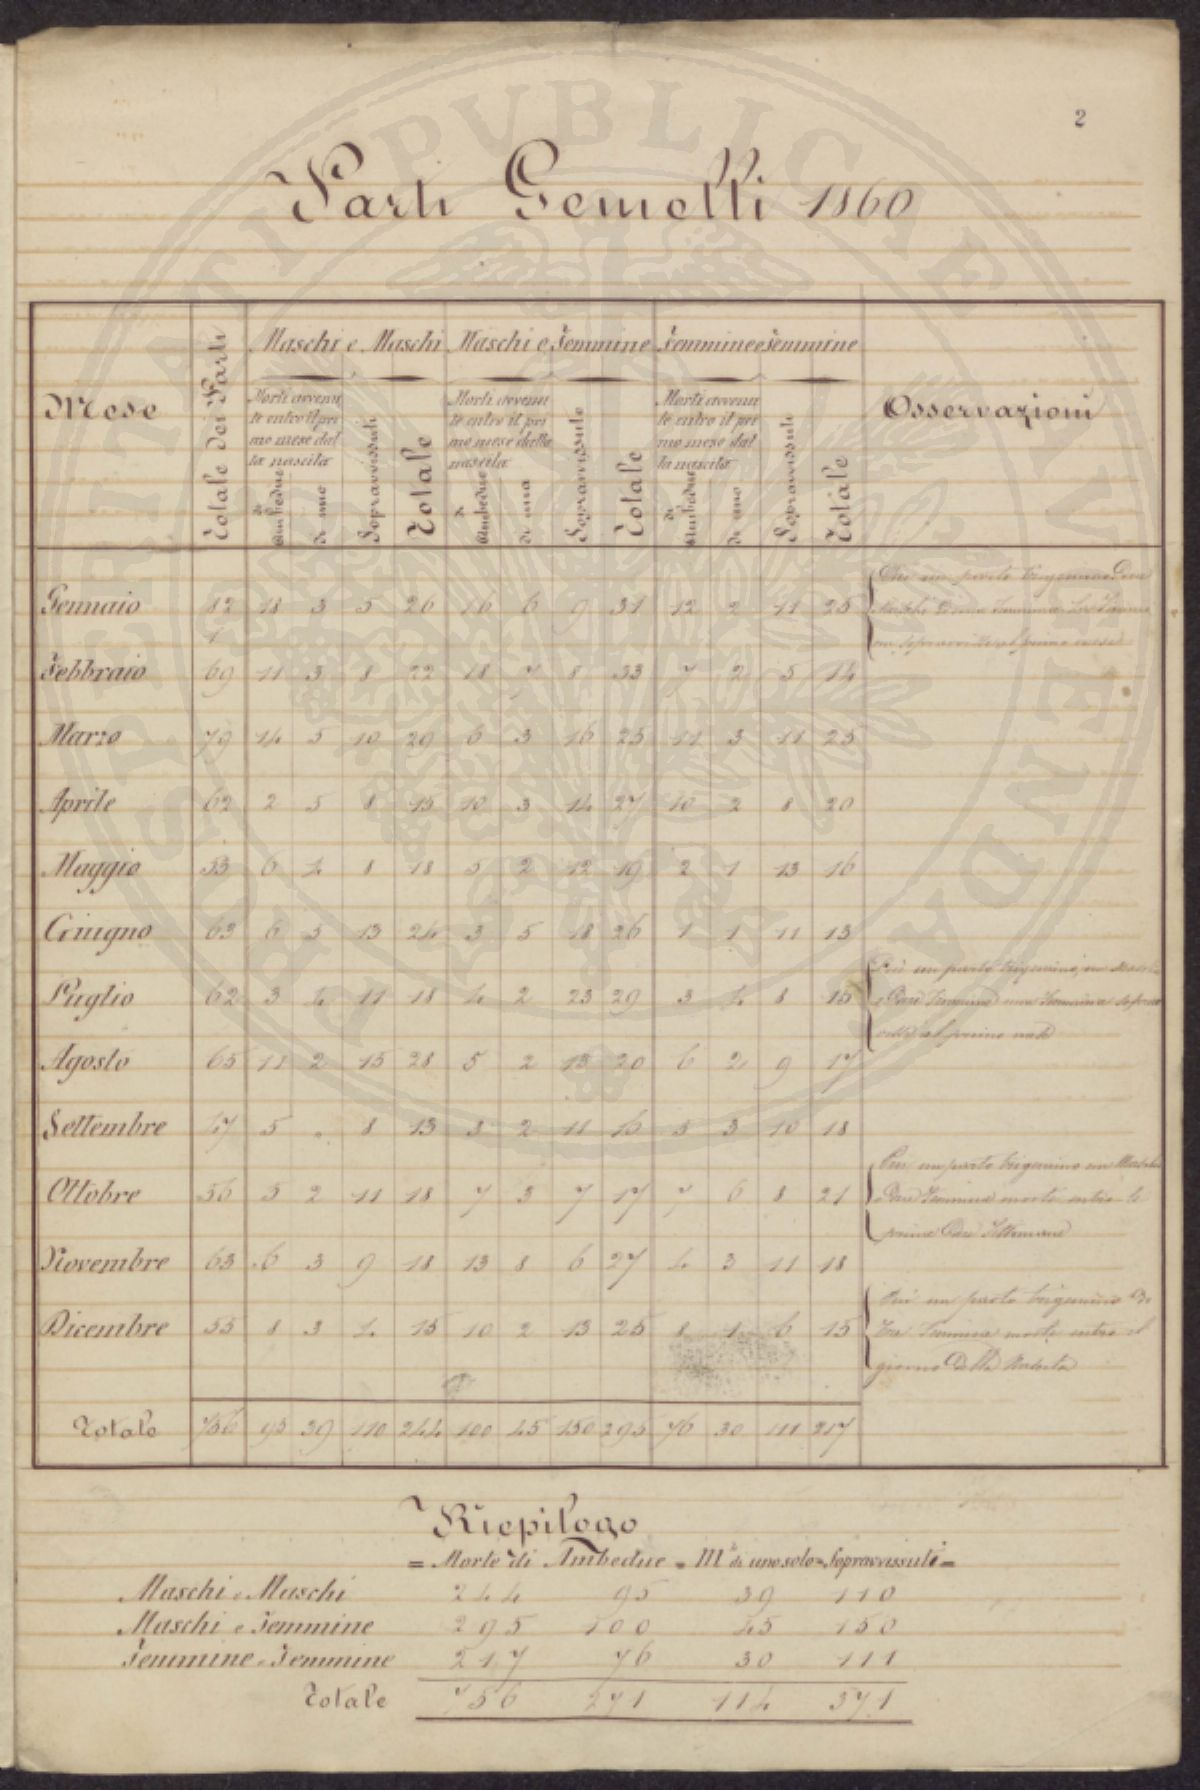 2
Parti Gemelli 1860
Mese | Totale dei Parti | Maschi e Maschi | Maschi e Femmine | Femmine e Femmine | Osservazioni
Morti avvenute entro il primo mese dalla nascita | Sopravvissuti | Totale | Morti avvenute entro il primo mese dalla nascita | Sopravvissuti | Totale | Morti avvenute entro il primo mese dalla nascita | Sopravvissuti | Totale
di Ambedue | di uno | di Ambedue | di uno | di Ambedue | di uno
Gennaio 82 18 3 5 26 16 6 9 31 12 2 11 25
Febbraio 69 11 3 8 22 18 7 8 33 7 2 5 14
Marzo 79 14 5 10 29 6 3 16 25 11 3 11 25
Aprile 62 2 5 8 15 10 3 14 27 10 2 8 20
Maggio 53 6 4 8 18 5 2 12 19 2 1 13 16
Giugno 63 6 5 13 24 3 5 18 26 1 1 11 13
Luglio 62 3 4 11 18 4 2 23 29 3 4 8 15
Agosto 65 11 2 15 28 5 2 13 20 6 2 9 17
Settembre 47 5 . 8 13 3 2 11 16 5 3 10 18
Ottobre 56 5 2 11 18 7 3 7 17 7 6 8 21
Più un parto trigemino un Maschio
e Due Femmine morti entro le
prime Due Settimane
Novembre 63 6 3 9 18 13 8 6 27 4 3 11 18
Dicembre 55 8 3 4 15 10 2 13 25 8 1 6 15
Più un parto trigemino Di
Tre Femmine morte entro il
giorno Della Nascita
Totale 756 95 39 110 244 100 45 150 295 76 30 111 217
Riepilogo
= Morte di Ambedue = M.ti di uno solo = Sopravvissuti =
Maschi e Maschi 244 95 39 110
Maschi e Femmine 295 100 45 150
Femmine e Femmine 217 76 30 111
Totale 756 271 114 371
HOSPITALITATI PUBLICAE AVVENDAE